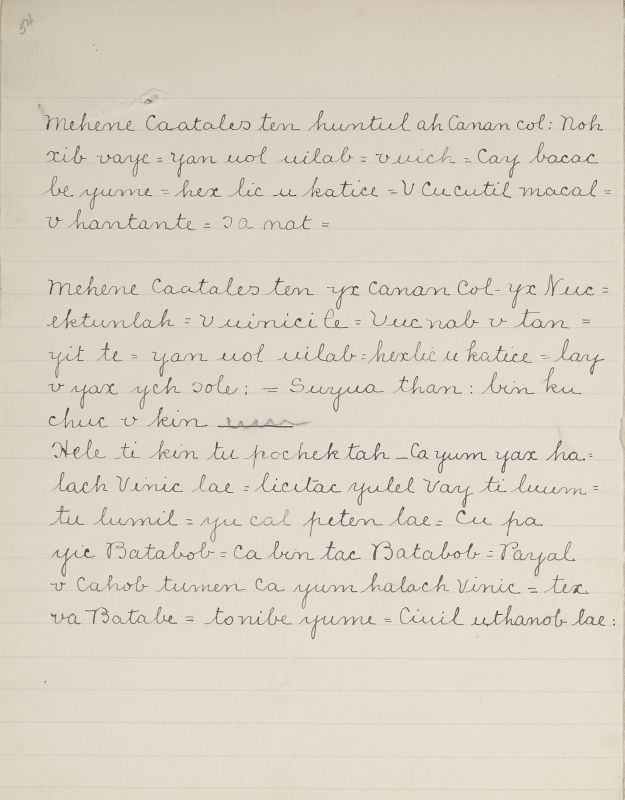 54
Mehene Caatales ten huntul ah Canan col: Noh
xib vaye = yan uol uilab = v uich = Cay bacac
be yume = hex lic u katice = V Cucutil macal =
v hantante = ɔa nat =
Mehene Caatales ten yx Canan Col - yx Nuc =
ektunlah = v uinicile = Vuc nab v tan =
yit te = yan uol uilab = hex lic u katice = lay
v yax ych ɔole : = Suyua than : bin ku
chuc v kin
Hele ti kin tu pochektah - Ca yum yax ha =
lach Vinic lae = licitac yulel Vay ti luum =
tu lumil = yu cal peten lae = Cu pa
yic Batabob = Ca bin tac Batabob = Payal
v Cahob tumen Ca yum halach Vinic = tex
va Batabe = tonibe yume = Ciuil uthanob lae :